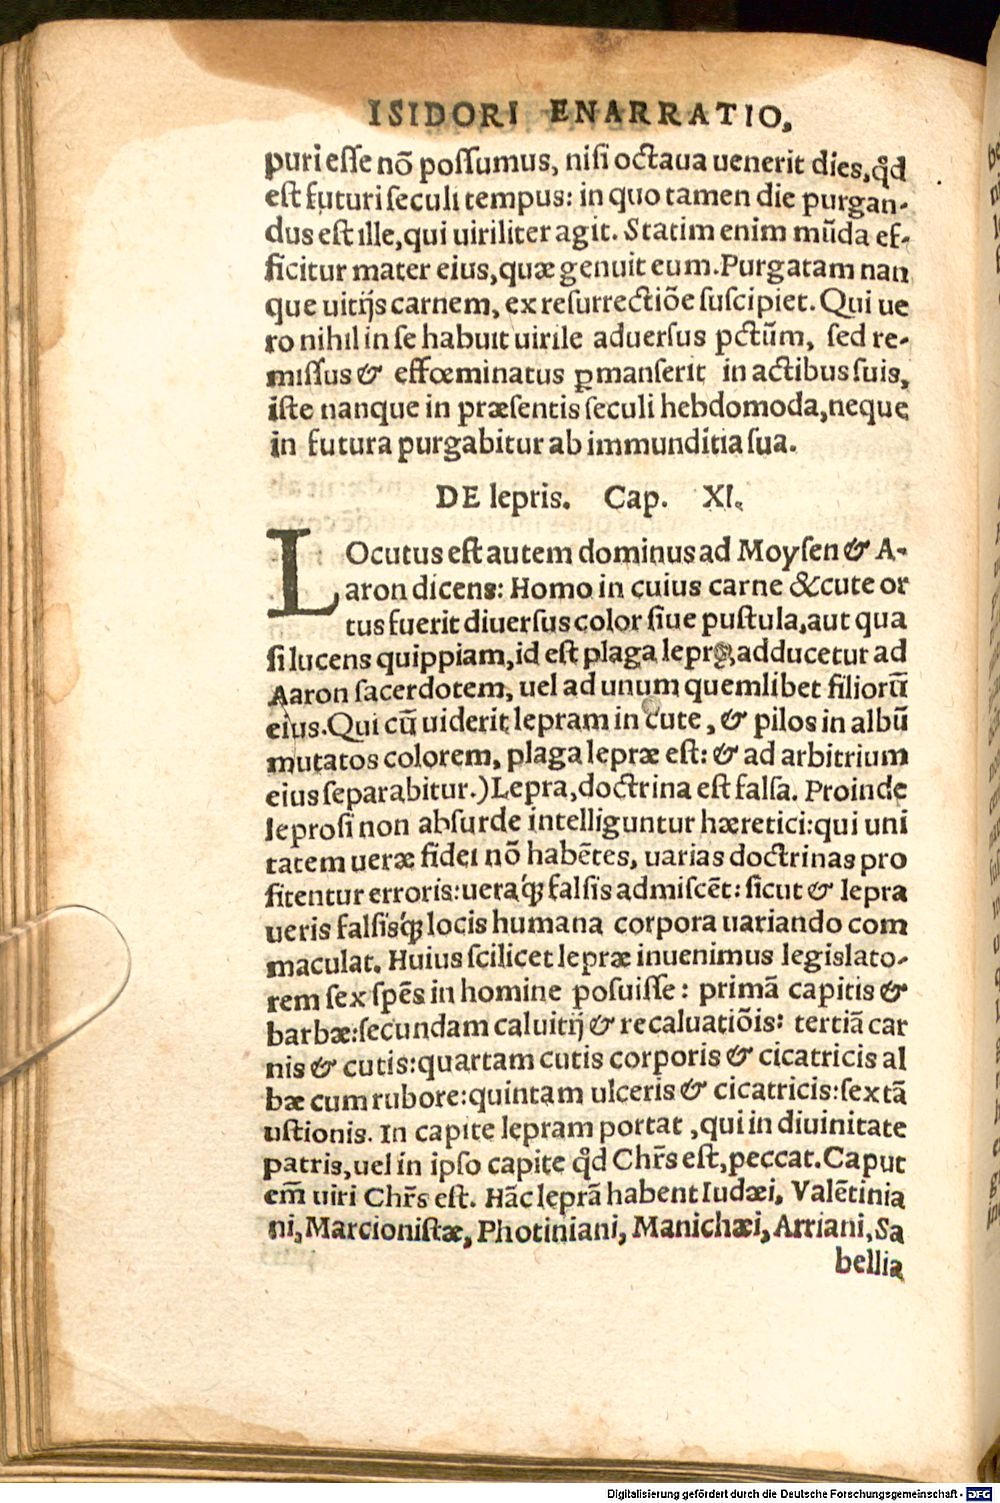 ISIDORI ENARRATIO,
puri esse nõ possumus, nisi octaua uenerit dies, qd̾
est futuri seculi tempus: in quo tamen die purgan-
dus est ille, qui uiriliter agit. Statim enim mũda ef-
ficitur mater eius, quæ genuit eum. Purgatam nan
que uitijs carnem, ex resurrectiõe suscipiet. Qui ue
ro nihil in se habuit uirile aduersus pctũm, sed re-
missus & effœminatus ꝑmanserit in actibus suis,
iste nanque in præsentis seculi hebdomoda, neque
in futura purgabitur ab immunditia sua.
DE lepris. Cap. XI.
LOcutus est autem dominus ad Moysen & A-
aron dicens: Homo in cuius carne & cute or
tus fuerit diuersus color siue pustula, aut qua
si lucens quippiam, id est plaga lepræ, adducetur ad
Aaron sacerdotem, uel ad unum quemlibet filiorũ
eius. Qui cũ uiderit lepram in cute, & pilos in albũ
mutatos colorem, plaga lepræ est: & ad arbitrium
eius separabitur.) Lepra, doctrina est falsa. Proinde
leprosi non absurde intelliguntur hæretici: qui uni
tatem ueræ fidei nõ habẽtes, uarias doctrinas pro
fitentur erroris: ueraq́ꝫ falsis admiscẽt: sicut & lepra
ueris falsisq́ꝫ locis humana corpora uariando com
maculat. Huius scilicet lepræ inuenimus legislato-
rem sex spẽs in homine posuisse: primã capitis &
barbæ: secundam caluitij & recaluatiõis: tertiã car
nis & cutis: quartam cutis corporis & cicatricis al
bæ cum rubore: quintam ulceris & cicatricis: sextã
ustionis. In capite lepram portat, qui in diuinitate
patris, uel in ipso capite qd̾ Chr̃s est, peccat. Caput
em̃ uiri Chr̃s est. Hãc leprã habent Iudæi, Valẽtinia
ni, Marcionistæ, Photiniani, Manichæi, Arriani, Sa
bellia
Digitalisierung gefördert durch die Deutsche Forschungsgemeinschaft - DFG